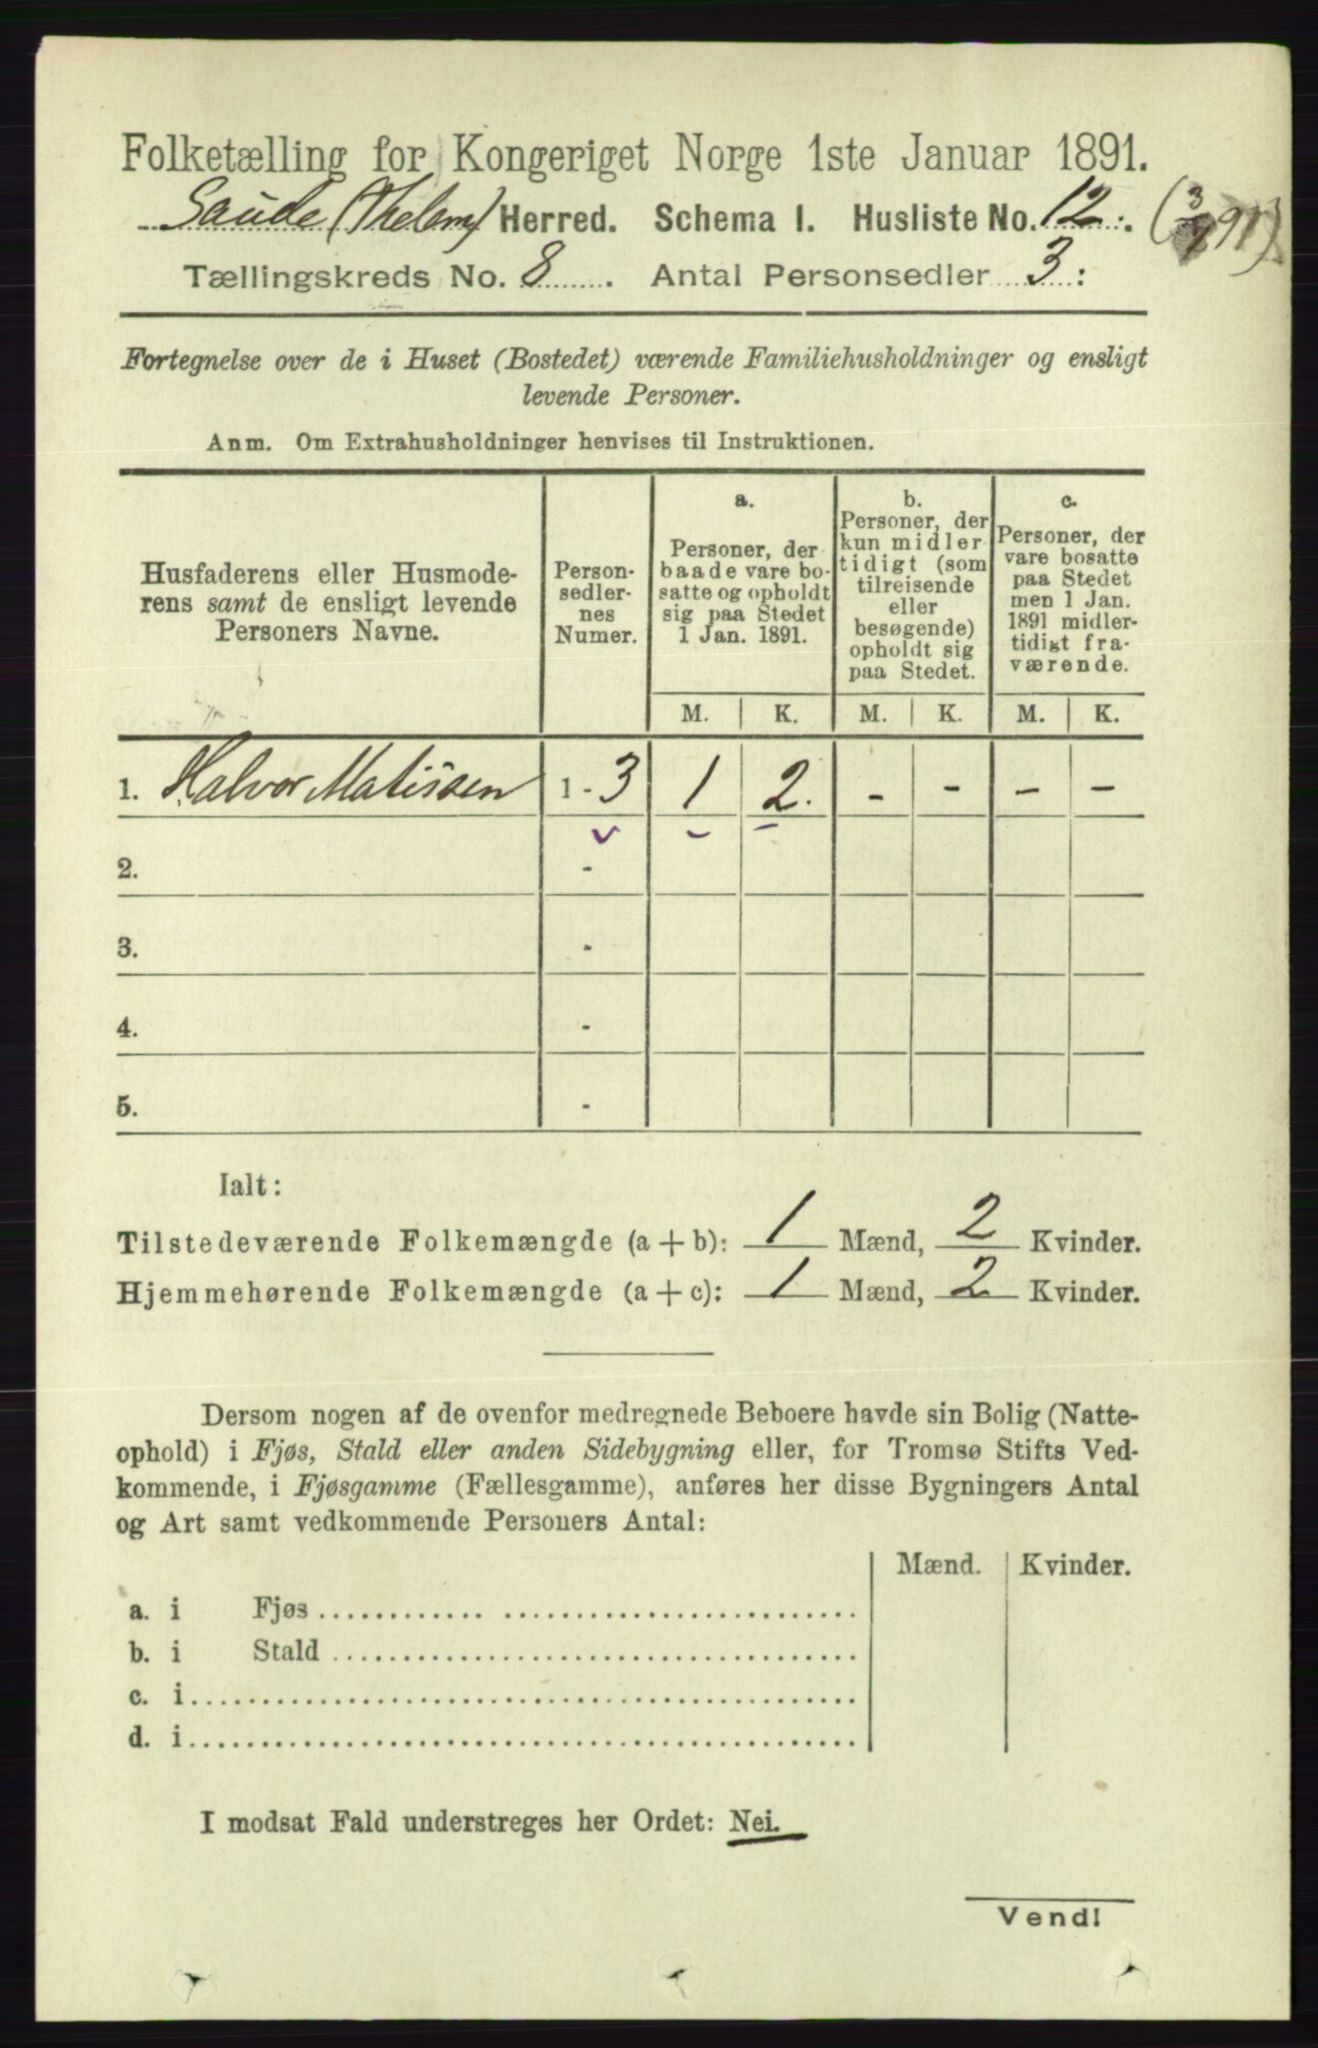 Folketælling for Kongeriget Norge 1ste Januar 1891.
Saude (Thelem) Herred. Schema I. Husliste No. 12.
Tællingskreds No. 8. Antal Personsedler 3:
Fortegnelse over de i Huset (Bostedet) værende Familiehusholdninger og ensligt
levende Personer.
Anm. Om Extrahusholdninger henvises til Instruktionen.
Husfaderens eller Husmode-
rens samt de ensligt levende
Personers Navne.
Person-
sedler-
nes
Numer.
a.
Personer, der
baade vare bo-
satte og opholdt
sig paa Stedet
1 Jan. 1891.
b.
Personer, der
kun midler
tidigt (som
tilreisende
eller
besøgende)
opholdt sig
paa Stedet.
c.
Personer, der
vare bosatte
paa Stedet
men 1 Jan.
1891 midler-
tidigt fra-
værende.
M. K. M. K. M. K.
1. Halvor Matissen 1 - 3 1 2. - - - -
2. -
3. -
4. -
5. -
Ialt:
Tilstedeværende Folkemængde (a + b): 1 Mænd, 2 Kvinder.
Hjemmehørende Folkemængde (a + c): 1 Mænd, 2 Kvinder.
Dersom nogen af de ovenfor medregnede Beboere havde sin Bolig (Natte-
ophold) i Fjøs, Stald eller anden Sidebygning eller, for Tromsø Stifts Ved-
kommende, i Fjøsgamme (Fællesgamme), anføres her disse Bygningers Antal
og Art samt vedkommende Personers Antal:
Mænd. Kvinder.
a. i Fjøs
b. i Stald
c. i
d. i
I modsat Fald understreges her Ordet: Nei.
Vend!